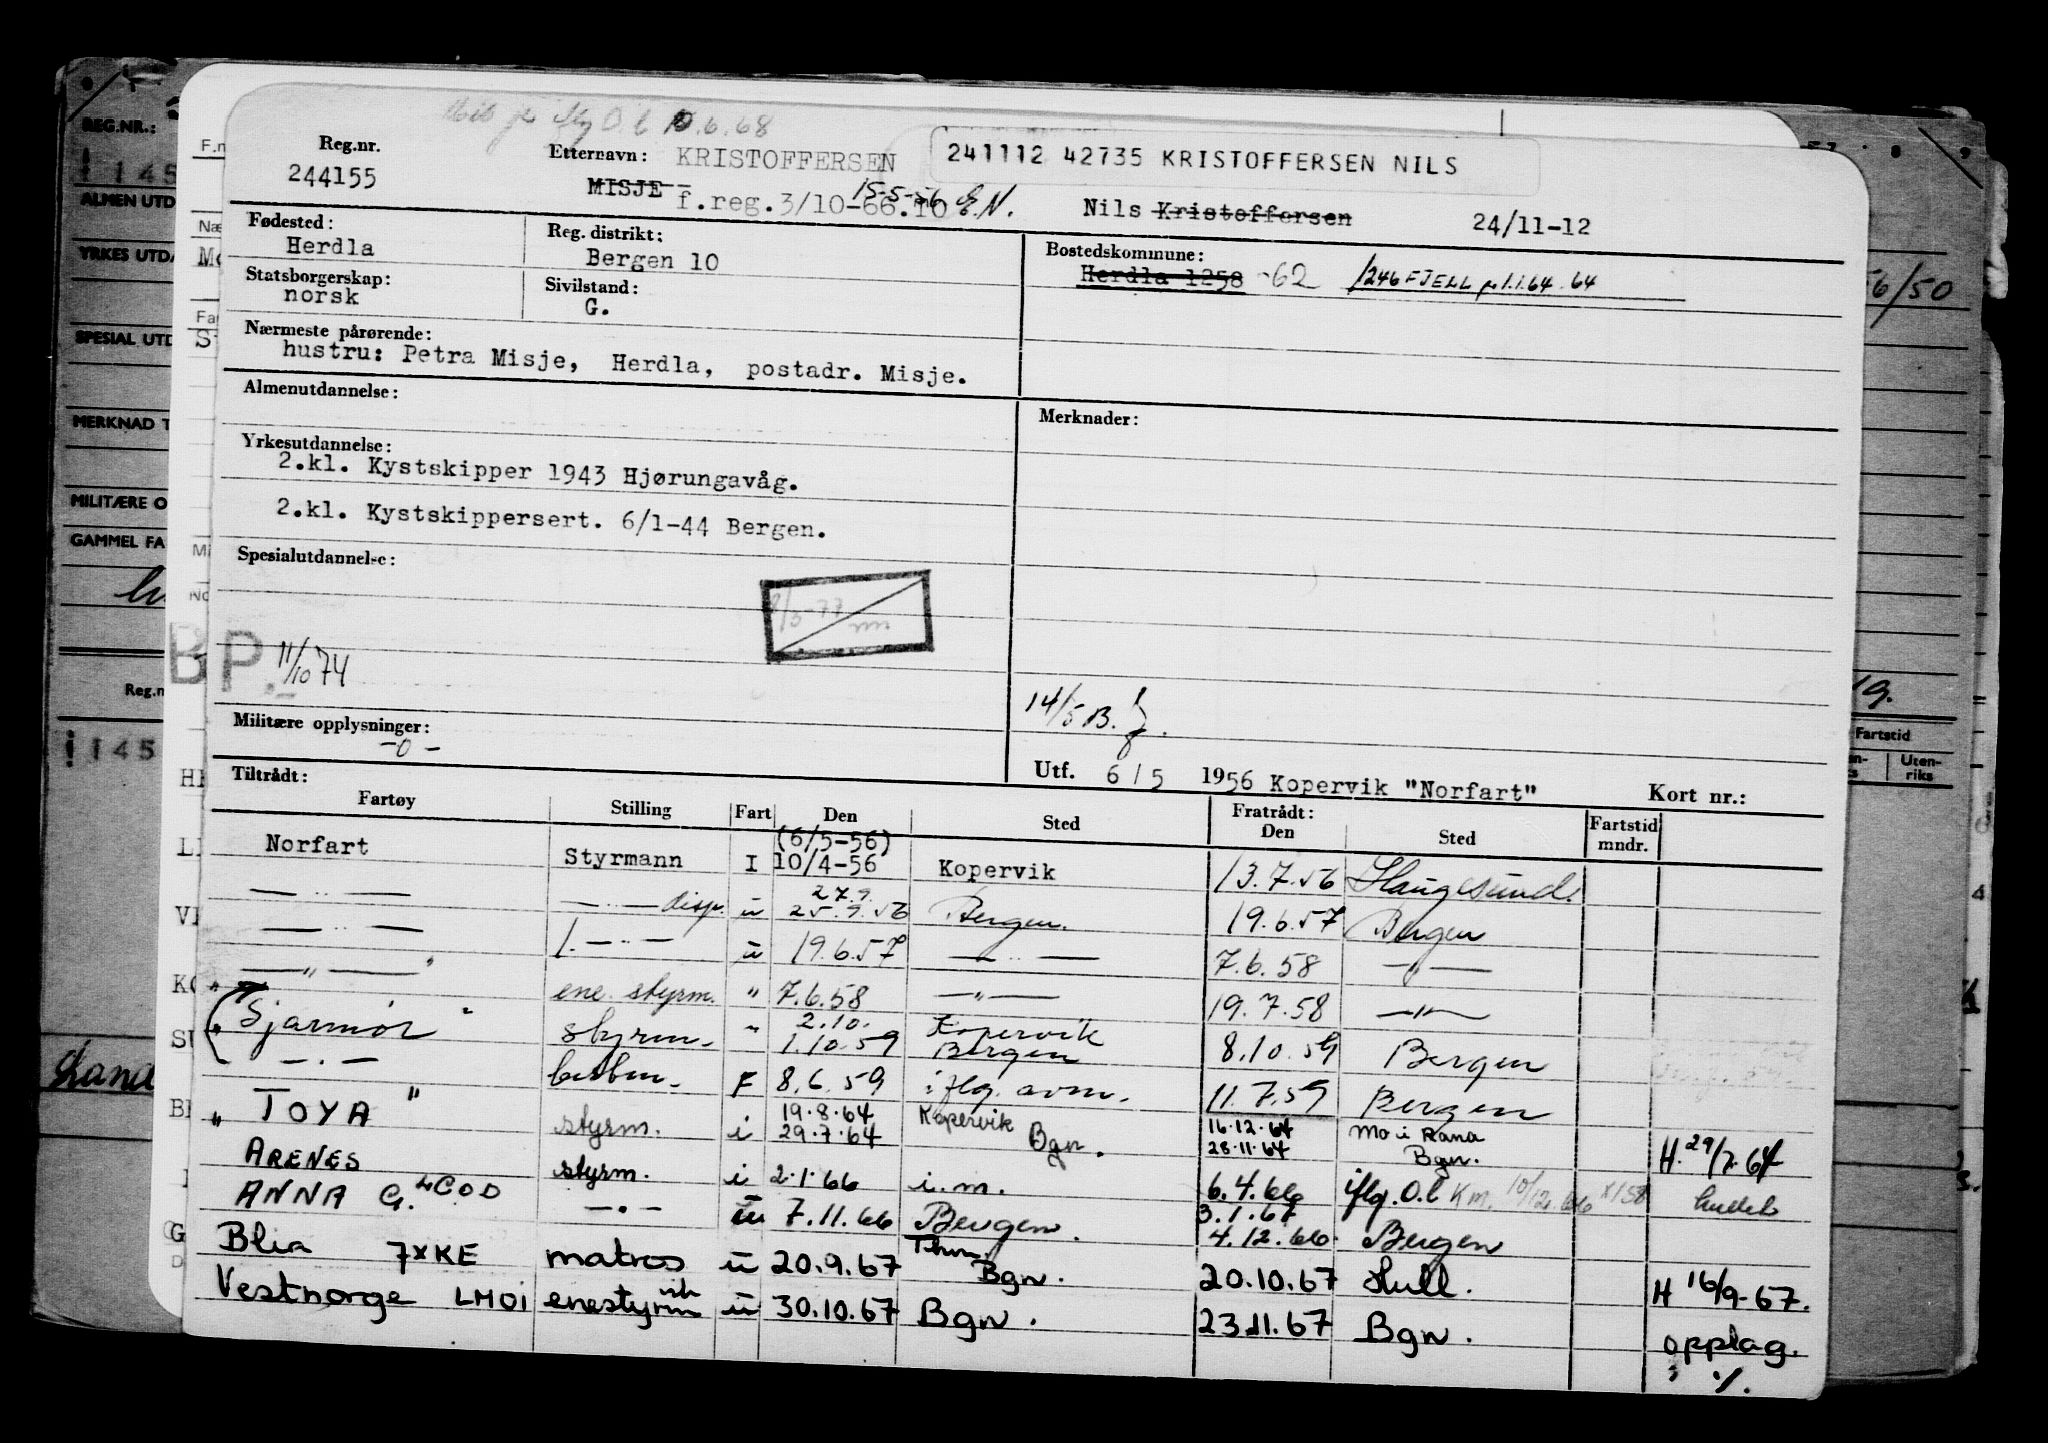 O.l 10.6.68
Reg.nr. Etternavn: KRISTOFFERSEN 241112 42735 KRISTOFFERSEN NILS
244155 MISJE 15-5-56 E.N.
f.reg.3/10-66.10 Nils Kristoffersen 24/11-12
Fødested: Reg. distrikt: Bostedskommune:
Herdla Bergen 10 Herdla 1258 -62 1246 FJELL pr 1.1.64 64
Statsborgerskap: Sivilstand:
norsk G.
Nærmeste pårørende:
hustru: Petra Misje, Herdla, postadr. Misje.
Almenutdannelse: Merknader:
Yrkesutdannelse:
2.kl. Kystskipper 1943 Hjørungavåg.
2.kl. Kystskippersert. 6/1-44 Bergen.
Spesialutdannelse:
BP. 11/10 74
14/5 B.
Militære opplysninger:
-0-
Utf. 6/5 1956 Kopervik "Norfart" Kort nr.:
Tiltrådt: Fratrådt:
Fartøy Stilling Fart Den Sted Den Sted Fartstid mndr.
Norfart Styrmann I (6/5-56) 10/4-56 Kopervik 13.7.56 Haugesund.
— „ — — „ — disp. u 27.9. 25.9.56 Bergen. 19.6.57 Bergen
— „ — 1. — „ — u 19.6.57 — „ — 7.6.58 — „ —
— „ — ene. styrm. " 7.6.58 — „ — 19.7.58 — „ —
" Sjarmør " styrm. " 2.10. 1.10.59 Kopervik Bergen 8.10.59 Bergen
" — „ — F 8.6.59 iflg. avm. 11.7.59 Bergen
" TOYA " styrm. i 19.8.64 29.7.64 Kopervik Bgn. 16.12.64 28.11.64 Mo i Rana Bgn. H. 29/7-64
ARENES styrm. i 2.1.66 i.m. 6.4.66 iflg. O.l Km. 10/12.66 x158
ANNA G. LCOD — „ — u 7.11.66 Bergen. 3.1.67 4.12.66 Bergen
Blia 7XKE matros u 20.9.67 Bgn. 20.10.67 Hull. H 16/9-67.
Vestnorge LMOI enestyrm u 30.10.67 Bgn. 23.11.67 Bgn. opplag.
REG.NR.:
145
ALMEN UTD
YRKES UTDA
SPESIAL UTD
MERKNAD T
MILITÆRE O
GAMMEL FA
Reg.n
145
6/50
19.
Fartstid
Uten-
riks